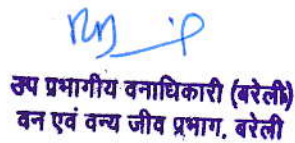 उप प्रभागीय वनाधिकारी (बरेली)
वन एवं वन्य जीव प्रभाग, बरेली